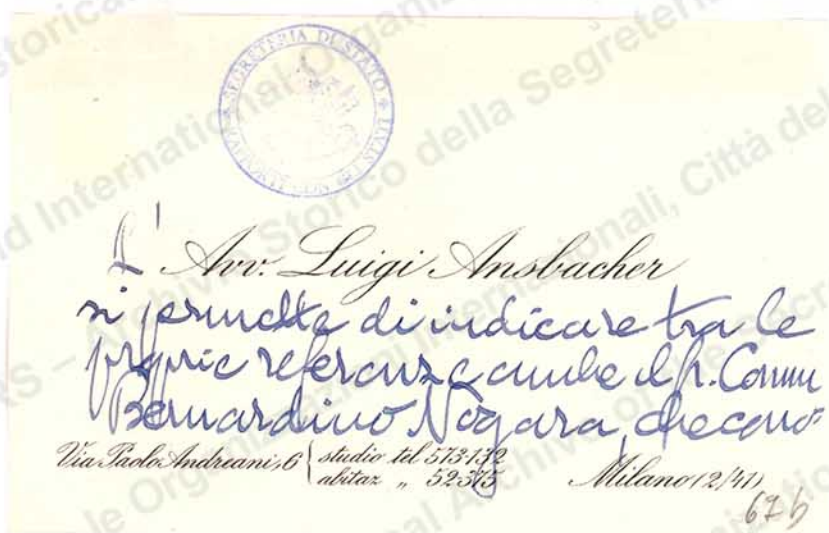 SEGRETERIA DI STATO
L' Avv. Luigi Ansbacher
si permette di indicare tra le
proprie referenze anche il Gr. Comm
Bernardino Nogara, che cono=
Via Paolo Andreani, 6 studio tel 573-132
abitaz " 52-375 Milano (2/41)
67 b